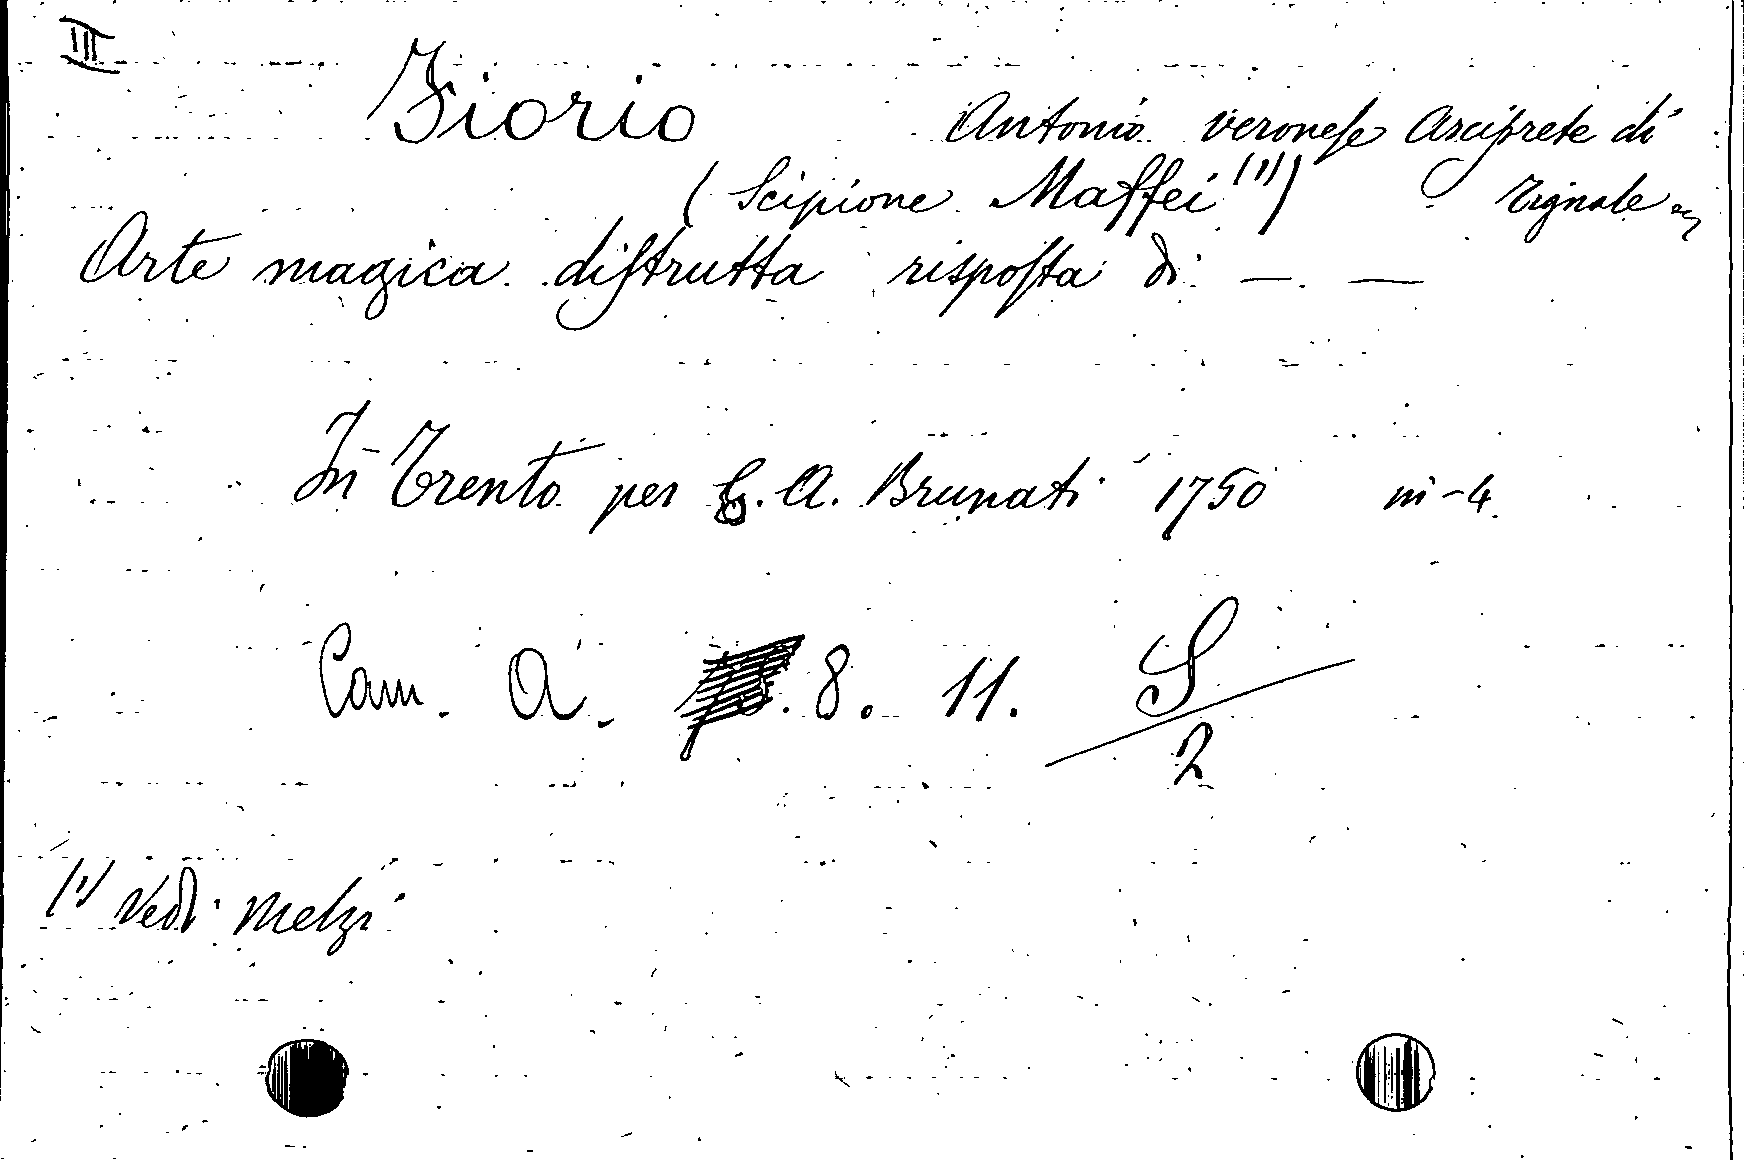 III
Fiorio Antonio veronese Arciprete di
(Scipione Maffei (1)) Tignale
Arte magica distrutta risposta di — —
In Trento per G. A. Brunati 1750 in-4
Cam. A. 8. 11. S/2
(1) Vedi Melzi